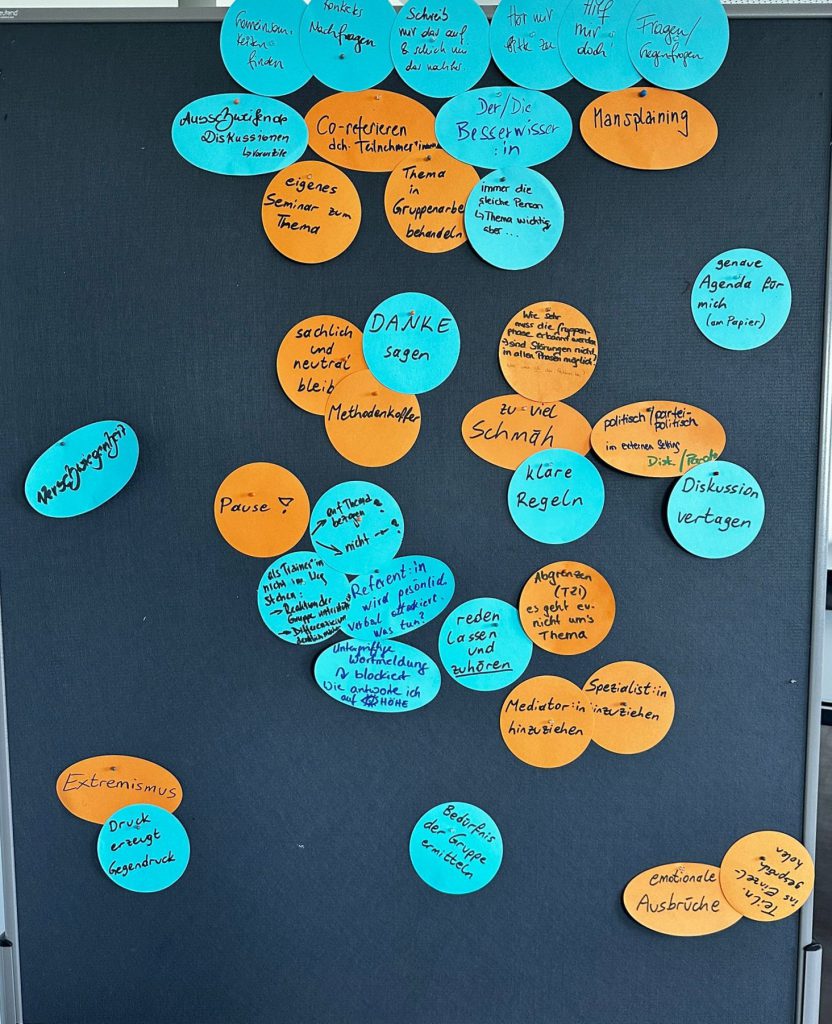 Gemeinsam-
keiten
finden
Nachfragen
Schreib
mir das auf
& schick mir
das nachher.
Hör mir
bitte zu
Hilf
mir
doch!
Fragen/
Gegenfragen
Ausschweifende
Diskussionen
Co-referieren
dch. Teilnehmer*innen
Der/Die
Besserwisser
:in
Mansplaining
eigenes
Seminar zum
Thema
Thema
in
Gruppenarbe
behandeln
immer die
gleiche Person
↳ Thema wichtig
aber...
genaue
Agenda für
mich
(am Papier)
sachlich
und
neutral
bleib
DANKE
sagen
Methodenkoffer
Wie sehr
muss die Gruppen-
phase erkannt werden
→ sind Störungen nicht
in allen Phasen möglich?
zu viel
Schmäh
politisch/partei-
politisch
im externen Setting
Disk/Parole
klare
Regeln
Diskussion
vertagen
Verschwiegenheit
Pause!
auf Thema
bezogen?
nicht → ?
als Trainer*in
nicht im Weg
stehen:
→ Reaktion der
Gruppe
→ Differenzierung
Referent:in
wird pesönlich
verbal attackiert.
Was tun?
Untergriffige
Wortmeldung
↯ blockiert
Wie antworte ich
auf HÖHE
reden
lassen
und
zuhören
Abgrenzen
(TZI)
es geht ev.
nicht um's
Thema
Mediator:in
hinzuziehen
Spezialist:in
inzuziehen
Extremismus
Druck
erzeugt
Gegendruck
Bedürfnis
der Gruppe
ermitteln
emotionale
Ausbrüche
Teiln.
ins Einzel-
gespräch
holen